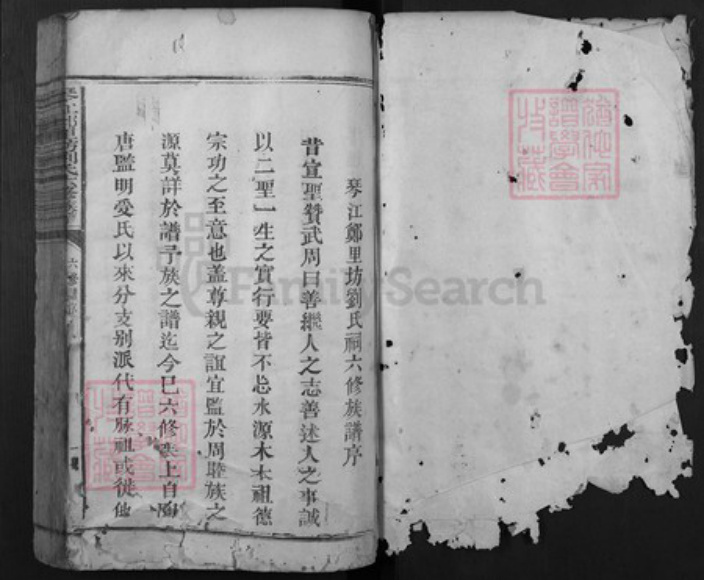 琴江鄭里坊劉氏祠六修族譜序
昔宣聖贊武周曰善繼人之志善述人之事誠
以二聖一生之實行要皆不忘水源木本祖德
宗功之至意也蓋尊親之誼宜監於周睦族之
源莫詳於譜予族之譜迄今已六修矣上自陶
唐監明受氏以來分支别派代有脉祖或徙他
FamilySearch